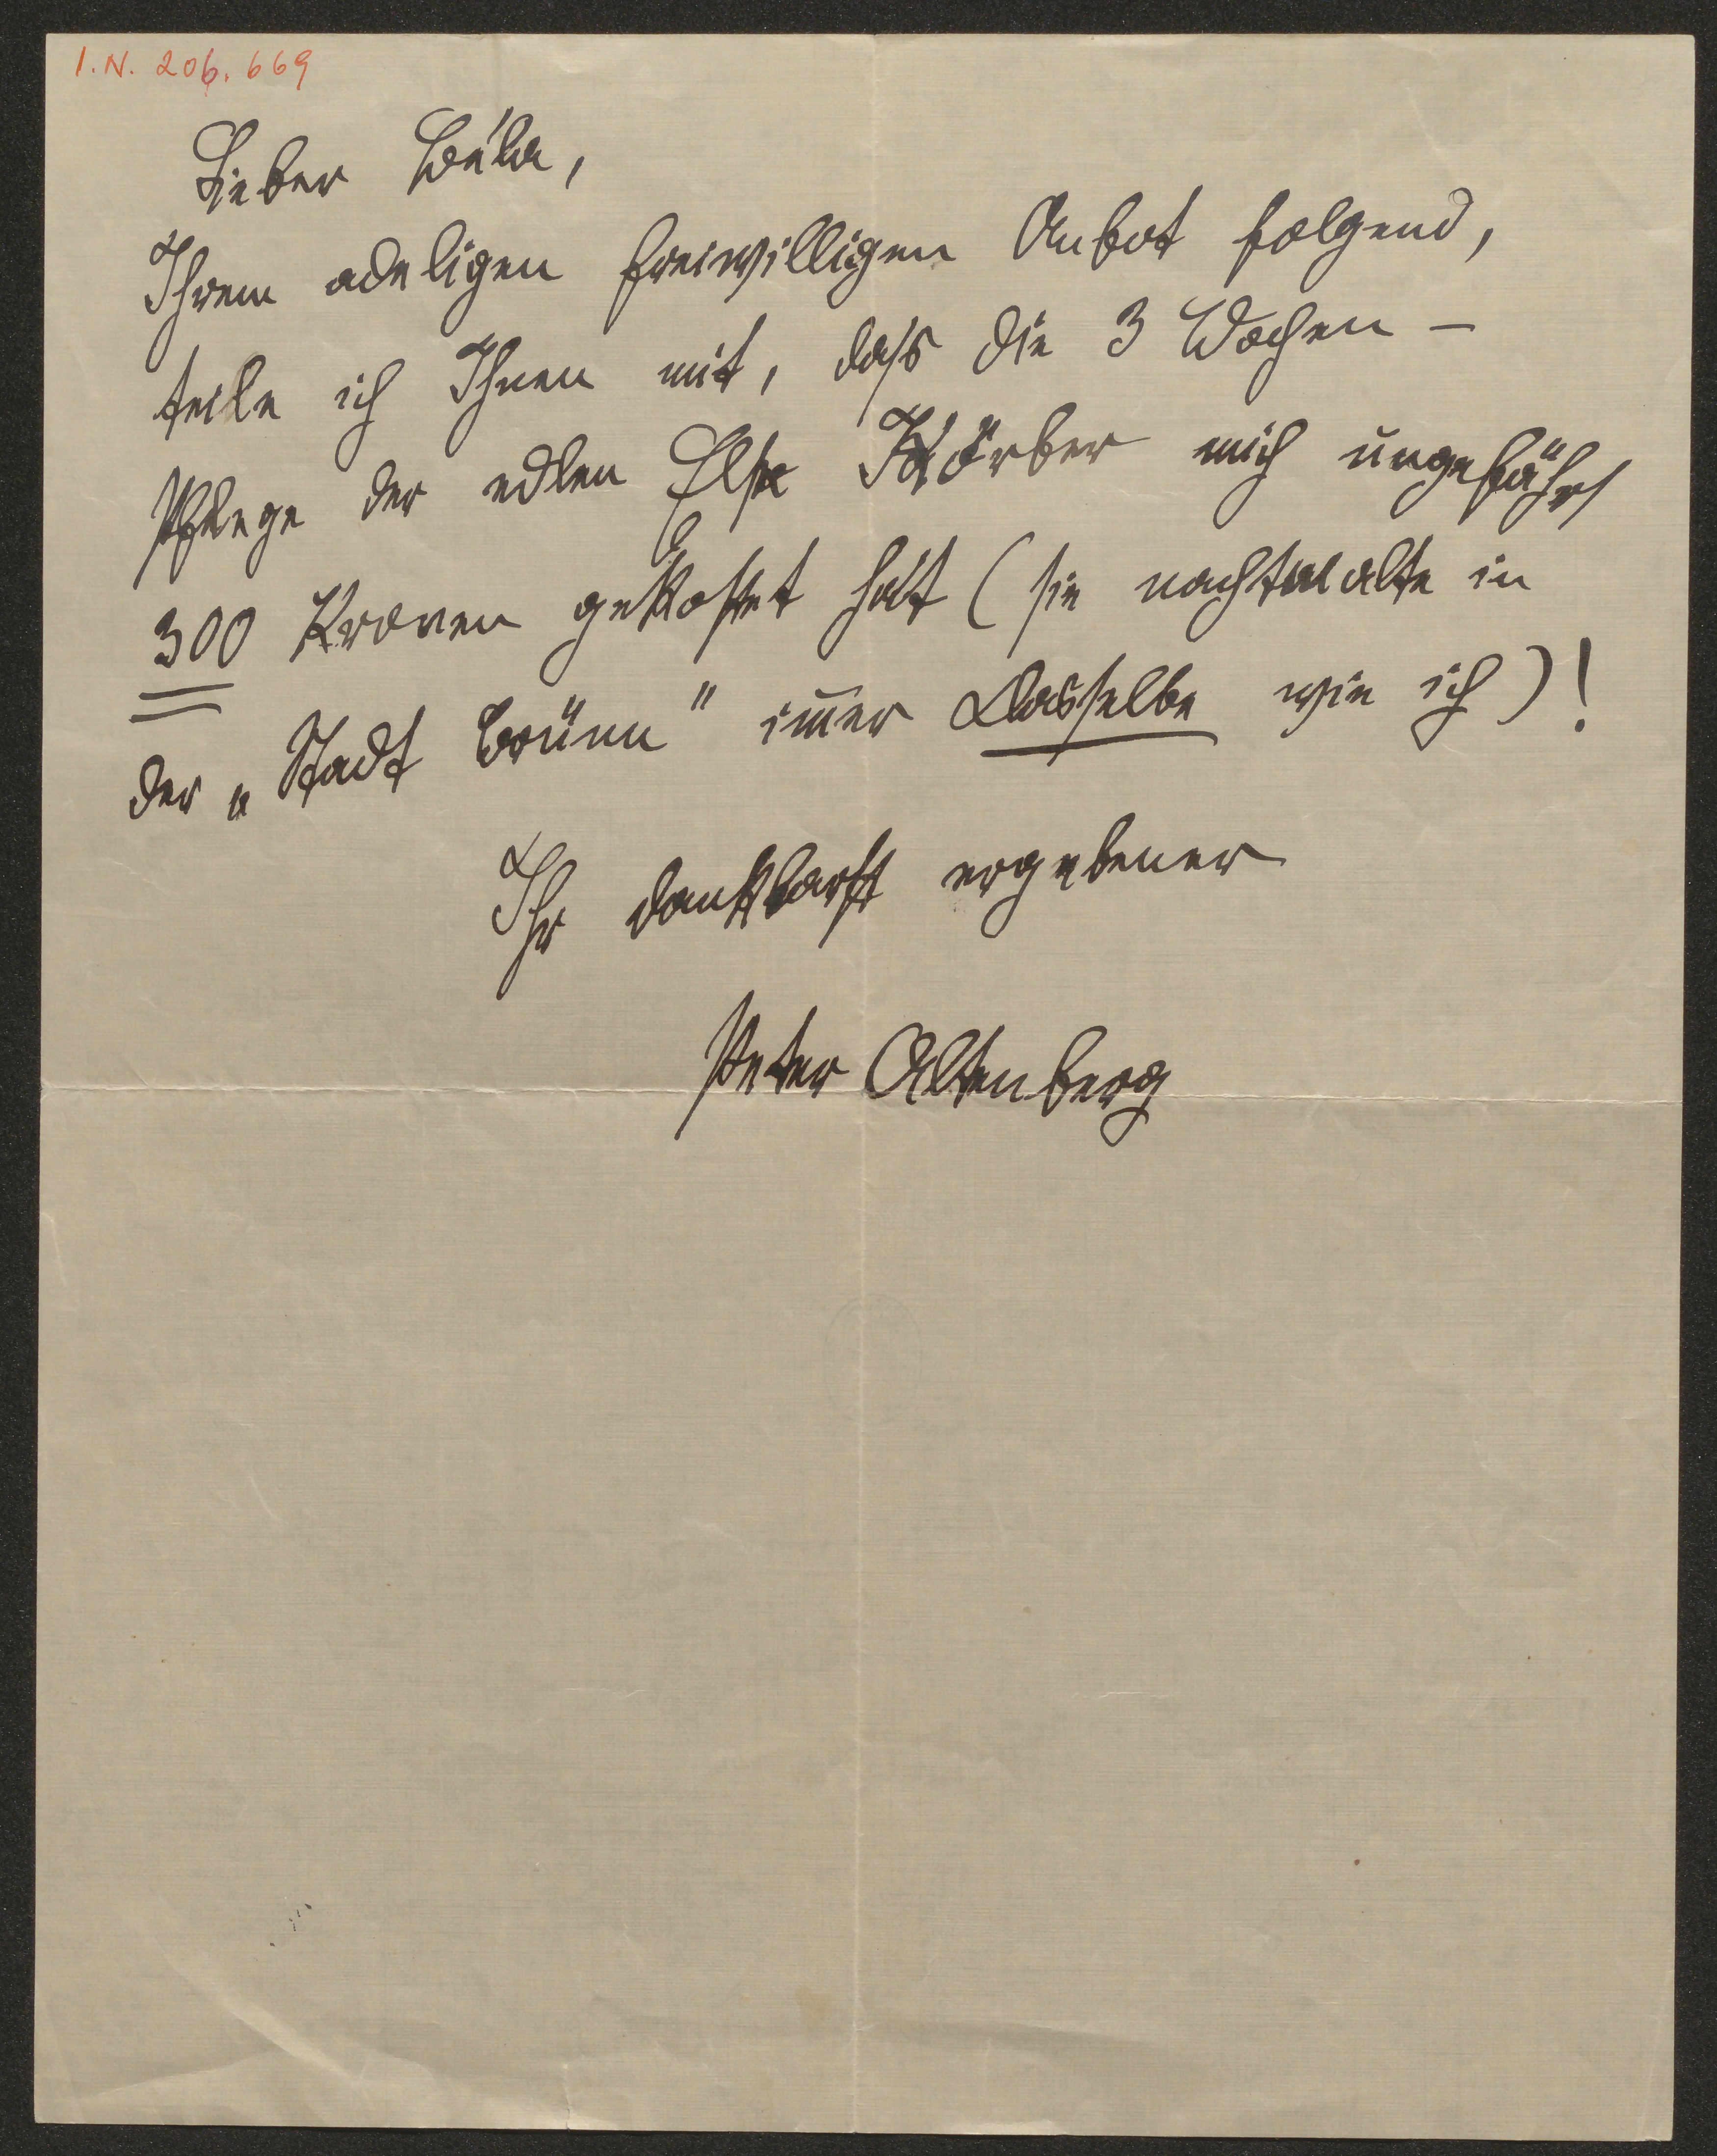 I.N. 206.669
Lieber Béla,
Ihrem adeligen freiwilligen Anbot folgend,
teile ich Ihnen mit, dass die 3 Wochen –
Pflege der edlen Else Körber mich ungefähr
300 Kronen gekostet hat (sie nachtmalte in
der „Stadt Brünn" im̅er Dasselbe wie ich)!
Ihr dankbarst ergebener
Peter Altenberg